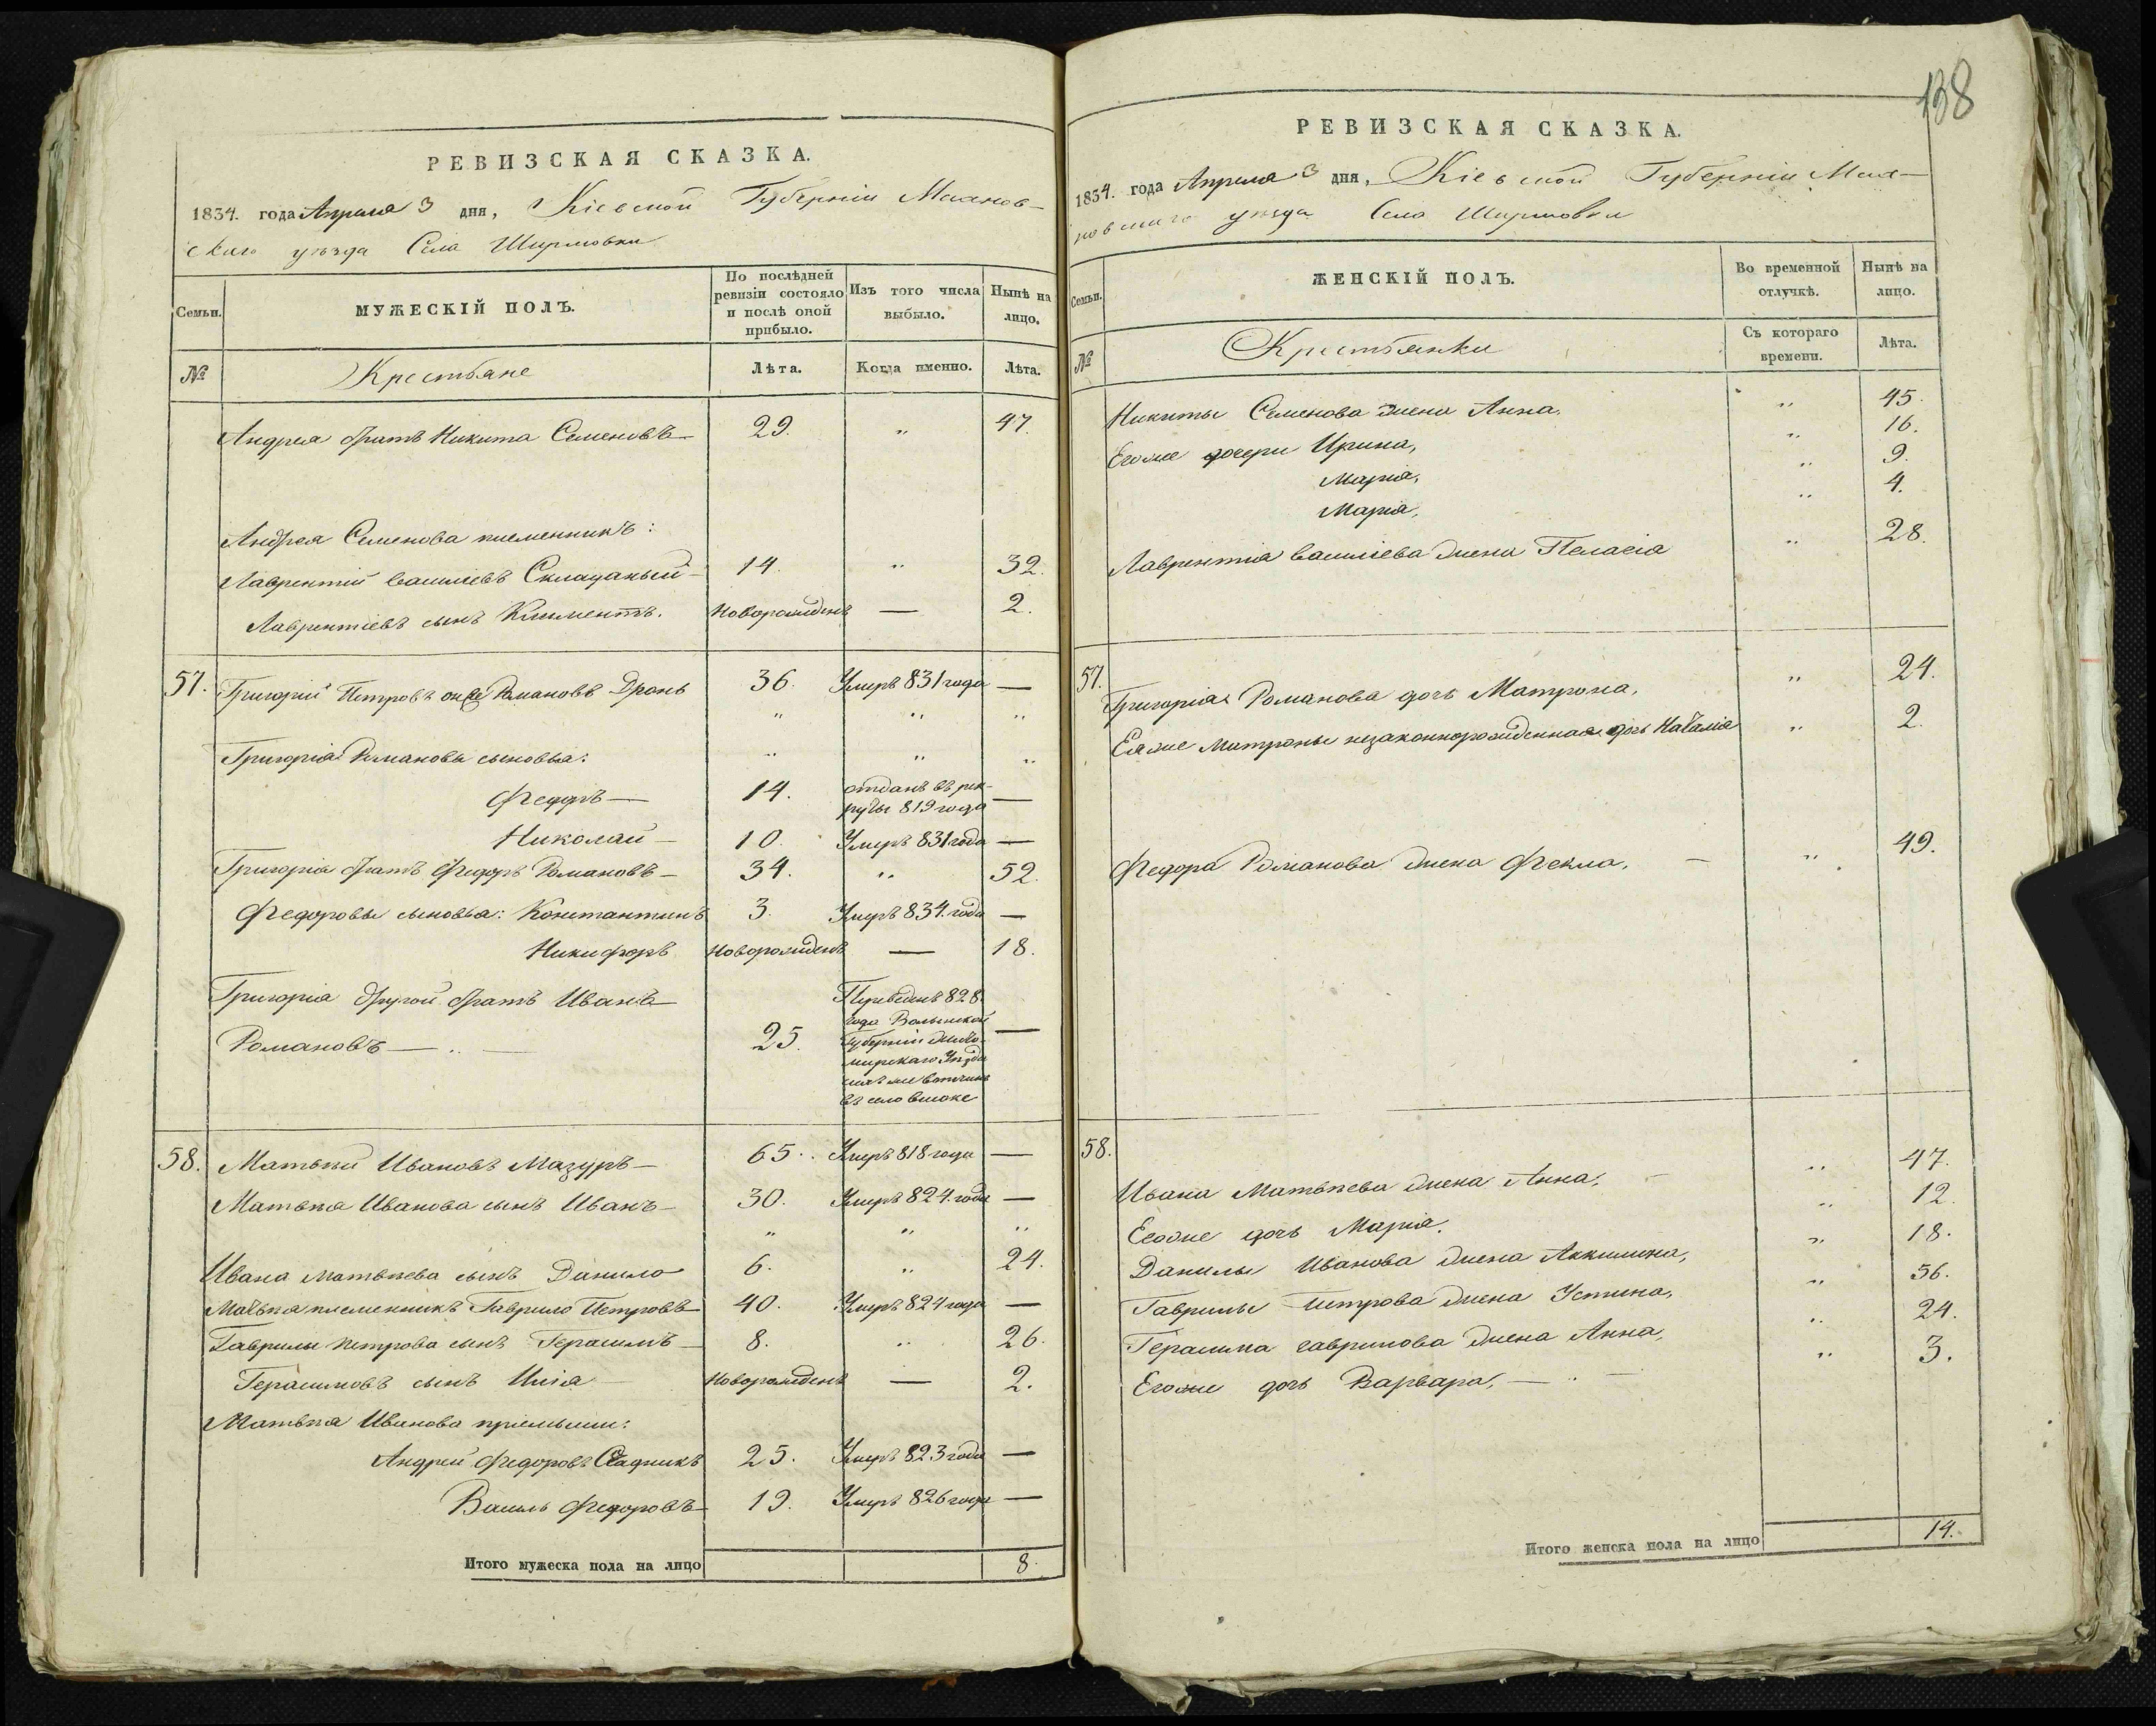 РЕВИЗСКАЯ СКАЗКА.
1834. года Апреля 3 дня, Кіевской Губерніи Махнов-
скаго уѣзда Села Ширмовки
Семьи.
МУЖЕСКІЙ ПОЛЪ.
По послѣдней ревизіи состояло и послѣ оной прибыло.
Изъ того числа выбыло.
Нынѣ на лицо.
№ Крестьяне Лѣта. Когда именно. Лѣта.
Андрея братъ Никита Семеновъ — 29. " 47.
Андрея Семенова племенникъ:
Лаврентій Василіевъ Складаный — 14. " 32.
Лаврентіевъ сынъ Климентъ. Новорожденъ — 2.
57. Григорій Петровъ онже Романовъ Дронь 36. Умеръ 831 года —
" " "
Григорія Романова сыновья: " " "
Федоръ — 14. отданъ въ рек-
руты 819 года —
Николай — 10. Умеръ 831 года —
Григорія братъ Федоръ Романовъ — 34. " 52.
Федоровы сыновья: Константинъ 3. Умеръ 834. года —
Никифоръ Новорожденъ — 18.
Григорія другой братъ Иванъ
Романовъ — " — 25. —
Переведенъ 828.
года Волынской
Губерніи Жито-
мирскаго Уѣзда
въ село
58. Матвѣй Ивановъ Мазуръ — 65. Умеръ 818 года —
Матвѣя Иванова сынъ Иванъ — 30. Умеръ 824. года —
" " "
Ивана Матвѣева сынъ Данило 6. " 24.
Матвѣя племенникъ Гаврило Петровъ 40. Умеръ 824 года —
Гаврилы Петрова сынъ Герасимъ — 8. " 26.
Герасимовъ сынъ Илія — Новорожденъ — 2.
Матвѣя Иванова пріемыши:
Андрей Федоровъ Стадникъ 25. Умеръ 823 года —
Василь Федоровъ — 19. Умеръ 826 года —
Итого мужеска пола на лицо 8.
138
РЕВИЗСКАЯ СКАЗКА.
1834. года Апреля 3 дня, Кіевской Губерніи Мах-
новскаго уѣзда Села Ширмовки
Семьи.
ЖЕНСКІЙ ПОЛЪ.
Во временной отлучкѣ.
Нынѣ на лицо.
№ Крестьянки Съ котораго времени. Лѣта.
Никиты Семенова жена Анна. " 45.
Егоже дочери Ирина, " 16.
Марія, " 9.
Марія, " 4.
Лаврентія Василіева жена Пелагія " 28.
57.
Григорія Романова дочь Матрона, " 24.
Еяже Матроны незаконнорожденная дочь Наталія " 2.
Федора Романова жена Фекла, — " 49.
58.
Ивана Матвѣева жена Анна, — " 47.
Егоже дочь Марія. " 12.
Данилы Иванова жена Аккилина, " 18.
Гаврилы Петрова жена Устина, " 56.
Герасима Гаврилова жена Анна, " 24.
Егоже дочь Варвара, — " — " 3.
Итого женска пола на лицо 14.